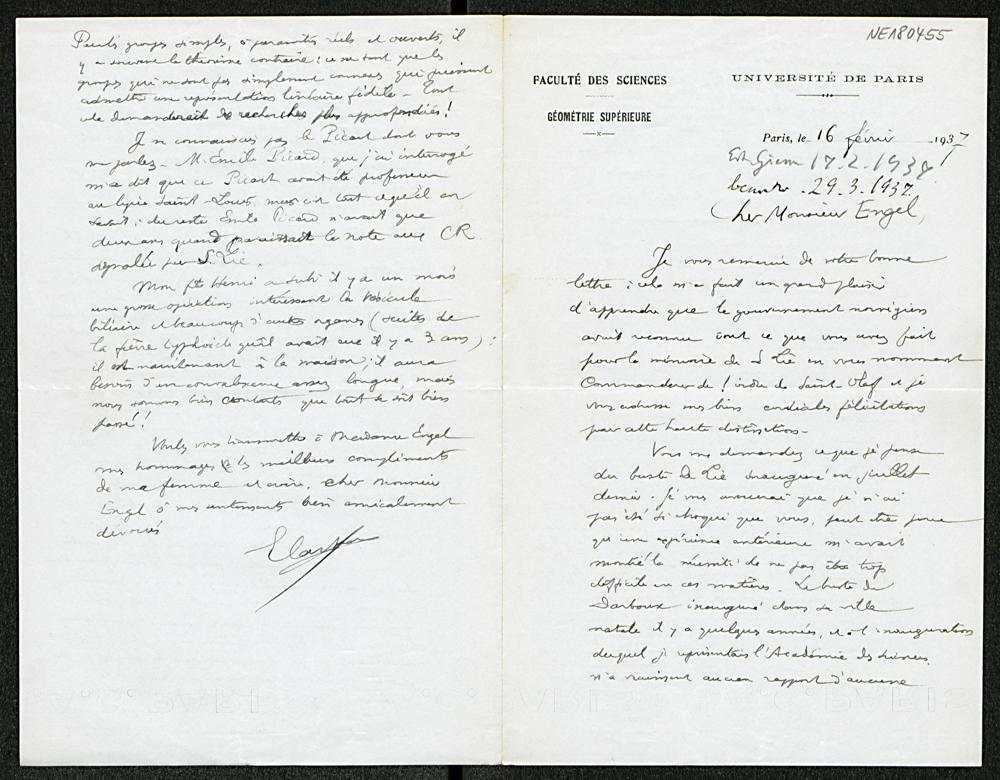 Pour les groupes simples, à paramètres réels et ouverts, il
y a souvent le théorème contraire : ce ne sont que les
groupes qui ne sont pas simplement connexes qui puissent
admettre une représentation linéaire fidèle - Tout
cela demanderait de recherches plus approfondies!
Je ne connaissais pas le Picart dont vous
me parlez - M. Emile Picard, que j'ai interrogé
m'a dit que ce Picart avait été professeur
au lycée Saint-Louis, mais c'est tout ce qu'il en
savait; du reste Emile Picard n'avait que
deux ans quand paraissait la note aux CR
signalée par S. Lie.
Mon fils Henri a subi il y a un mois
une grosse opération intéressant la vésicule
biliaire et beaucoup d'autres organes (suites de
la fièvre typhoïde qu'il avait eue il y a 3 ans);
il est maintenant à la maison; il aura
besoin d'une convalescence assez longue, mais
nous sommes bien contents que tout se soit bien
passé!
Veuillez vous transmettre à Madame Engel
mes hommages et les meilleurs compliments
de ma femme et croire, cher Monsieur
Engel à mes sentiments bien amicalement
dévoués
E Cartan
NE180455
FACULTÉ DES SCIENCES
GÉOMÉTRIE SUPÉRIEURE
UNIVERSITÉ DE PARIS
Paris, le 16 février 1937
Erh. Giessen 17.2.1937
beantw. 29.3.1937.
Cher Monsieur Engel,
Je vous remercie de votre bonne
lettre; cela m'a fait un grand plaisir
d'apprendre que le gouvernement norvégien
avait reconnu tout ce que vous avez fait
pour la mémoire de S Lie en vous nommant
Commandeur de l'ordre de Saint-Olaf et je
vous adresse mes bien cordiales félicitations
pour cette haute distinction -
Vous me demandez ce que je pense
du buste de Lie inauguré en juillet
dernier. Je vous avouerai que je n'ai
pas été si choqué que vous, peut être parce
qu'une expérience antérieure m'avait
montré la nécessité de ne pas être trop
difficile en ces matières. Le buste de
Darboux inauguré dans sa ville
natale il y a quelques années, et à l'inauguration
duquel je représentais l'Académie des Sciences
n'a vraiment aucun rapport d'aucune